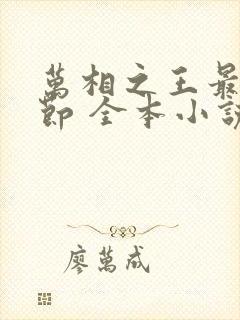 萬相之王最
節 全本小説
廖萬成